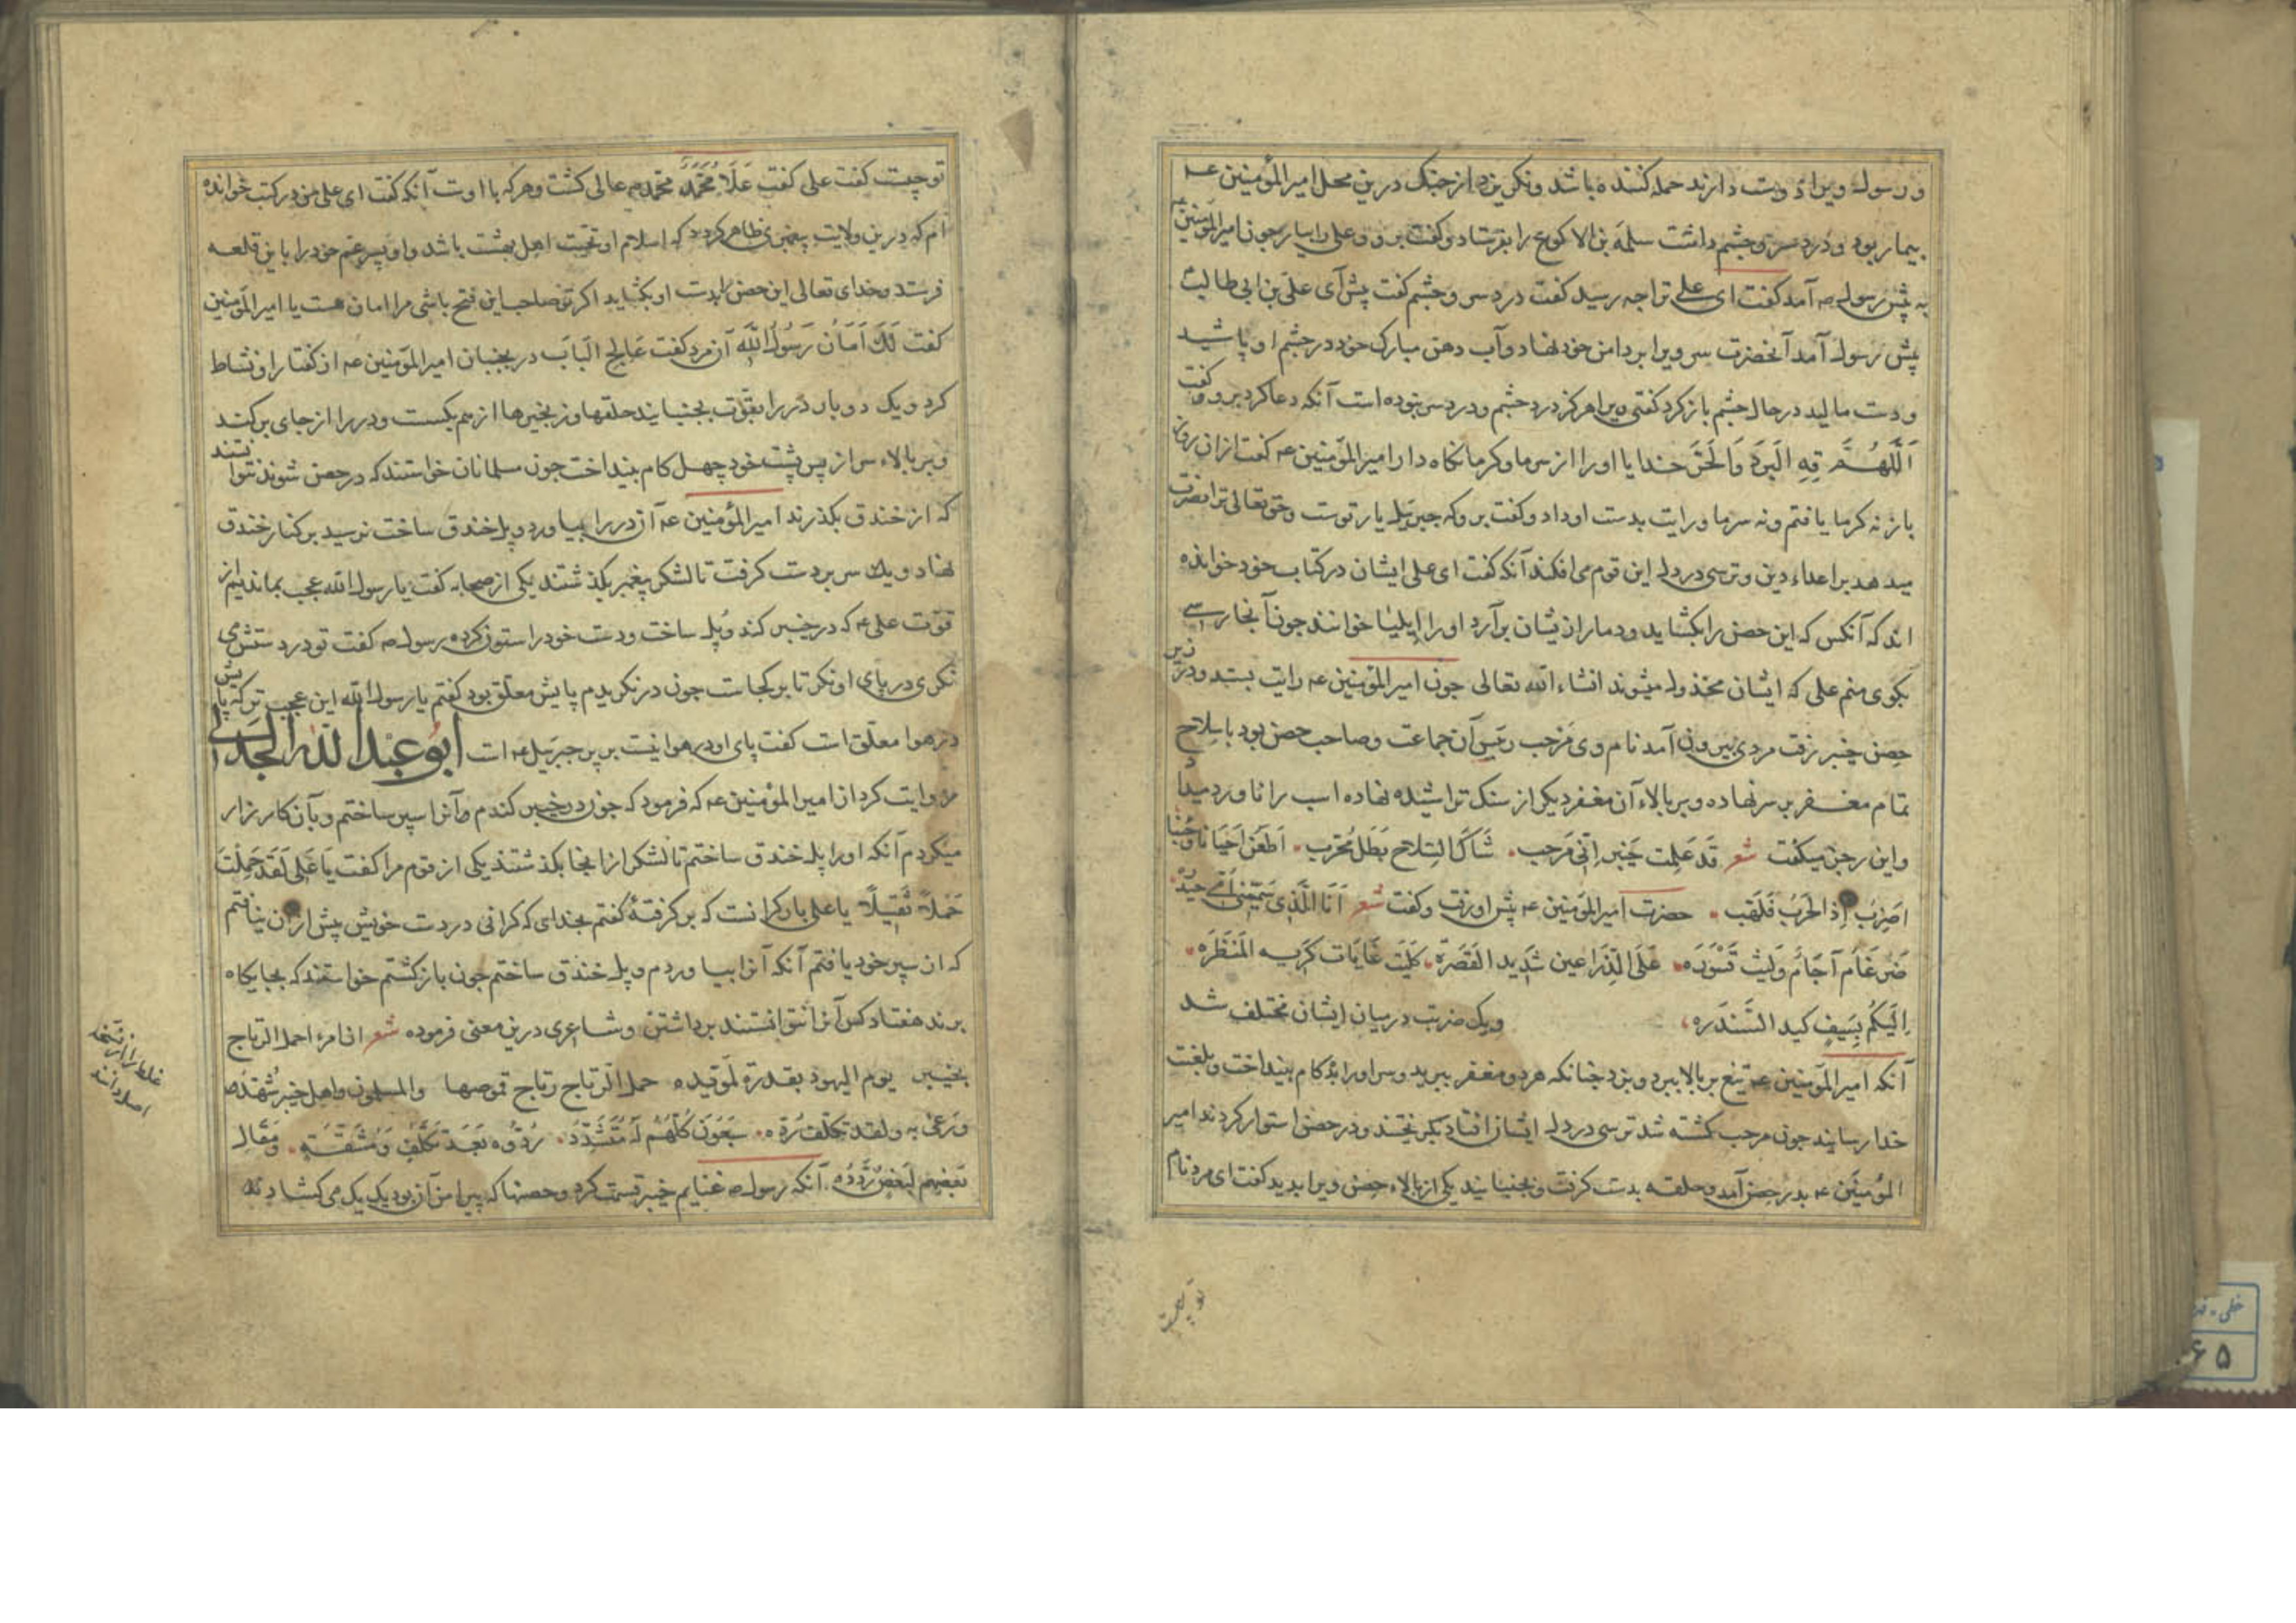 و رسول ویرا دوست دارند حمله کننده باشد و نکریزد از جنک درین محل امیرالمؤمنین عـ
بیمار بود و درد سر و چشم داشت سلمة بن الاکوع را بفرستاد و کفت برو و علی را بیار چون امیرالمؤمنین عـ
به پیش رسول صـ آمد کفت ای علی ترا چه رسید کفت درد سر و چشم کفت پیش آی علی بن ابی طالب
پیش رسول آمد آنحضرت سر ویرا بر دامن خود نهاد و آب دهن مبارک خود در چشم او پاشید
و دست مالید در حال چشم باز کرد کفتی ویرا هرکز درد چشم و درد سر نبوده است آنکه دعا کرد برو و کفت
اَللّهُمَّ قِهِ الْبَردَ وَالْحَرَّ خدایا او را از سرما و کرما نکاه دار امیرالمؤمنین عـ کفت از ان روز
باز نه کرما یافتم و نه سرما و رایت بدست او داد و کفت برو که جبرئیل یار توست و حق تعالی ترا نصرت
میدهد بر اعداء دین و ترسی در دل این قوم می افکند آنکه کفت ای علی ایشان در کتاب خود خوانده
اند که آنکس که این حصن را بکشاید و دمار از یشان برآرد او را ایلیا خوانند چون آنجا رسی
بکوی منم علی که ایشان مخذول میشوند انشاء الله تعالی چون امیرالمؤمنین عـ رایت بستد و در زیر
حصن خیبر رفت مردی بیرون آمد نام وی مرحب رئیس آن جماعت و صاحب حصن بود با سلاح
تمام مغفر بر سر نهاده و بر بالاء آن مغفر دیکر از سنک تراشیده نهاده اسب را ناورد میداد
و این رجز میکفت شعر قد علمت خیبر انی مرحب. شاک السلاح بطل مجرب. اطعن احیانا وحینا
اضرب اذ الحرب فلهب. حضرت امیرالمؤمنین عـ پیش او رفت و کفت شعر انا الذی سمتنی امی حیدره
ضرغام آجام ولیث قسوره. علی الذراعین شدید القصرة. کلیث غابات کریه المنظره.
الیکم بسیف کید السندره، و یک ضربت در میان ایشان مختلف شد
آنکه امیرالمؤمنین عـ تیغ بر بالا ببرد و بزد چنانکه هر دو مغفر ببرید و سر او را ده کام بینداخت و بلعنت
خدا رسانید چون مرحب کشته شد ترسی در دل ایشان افتاد بکریختند و در حصن استوار کردند امیر
المؤمنین عـ بدر حصن آمد و حلقه بدست کرفت و بجنبانید یکی از بالاء حصن ویرا بدید کفت ای مرد نام
تو چیست
تو چیست کفت علی کفت علا محمد محمد صـ عالی کشت و هرکه با اوست آنکه کفت ای علی من در کتب خوانده
ام که درین ولایت پیغمبری ظاهر کردد که اسلام او تحیت اهل بهشت باشد و او پسر عم خود را باین قلعه
فرستد و خدای تعالی این حصن را بدست او بکشاید اکر تو صاحب این فتح باشی مرا امان هست یا امیرالمؤمنین
کفت لَکَ اَمَانُ رَسُولُ اللَّه آن مرد کفت عالج الباب در بجنبان امیرالمؤمنین عـ از کفتار او نشاط
کرد و یک دو بار در را بقوت بجنبانید حلقها و زنجیرها از هم بکسست و در را از جای برکند
و بر بالاء سر از پس پشت خود چهل کام بینداخت چون مسلمانان خواستند که در حصن شوند نتوانستند
که از خندق بکذرند امیرالمؤمنین عـ آن در را بیاورد و پل خندق ساخت نرسید بر کنار خندق
نهاد و یک سر بر دست کرفت تا لشکر پیغمبر بکذشتند یکی از صحابه کفت یا رسول الله عجب بماندیم از
قوت علی عـ که در خیبر کند و پل ساخت و دست خود را ستون کرده رسول صـ کفت تو در دستش می
نکری در پای او نکر تا بر کجاست چون در نکریدم پایش معلق بود کفتم یا رسول الله این عجب تر که پایش
در هوا معلق است کفت پای او در هوا نیست بر پر جبرئیل عـ است ابو عبد الله الجدلی
روایت کرد از امیرالمؤمنین عـ که فرمود که چون در خیبر کندم و آنرا سپر ساختم و بآن کارزار
میکردم آنکه او را پل خندق ساختم تا لشکر از انجا بکذشتند یکی از قوم مرا کفت یا علی لقد حملت
حملاً ثقیلاً یا علی بار کرانست که برکرفتهٔ کفتم بخدای که کرانی در دست خویش بیش از آن نیافتم
که ان سپر خود یافتم آنکه آنرا بیاوردم و پل خندق ساختم چون بازکشتم خواستند که بجایکاه
برند هفتاد کس آنرا نتوانستند برداشتن و شاعری درین معنی فرموده شعر ان امرء احمل الرتاج
بخیبر یوم الیهود بقدرة لمؤیده حمل الرتاج رتاج قموصها والمسلمون واهل خیبر شهّد
به ولقد تکلف رده. سبعون کلهم له متشدّد. ردّوه بعد تکلّف ومشقّة. ومقال
بعضهم لبعض اردده. آنکه رسول صـ غنایم خیبر قسمت کرد و حصنها که پیرامن آن بود یک یک می کشادند